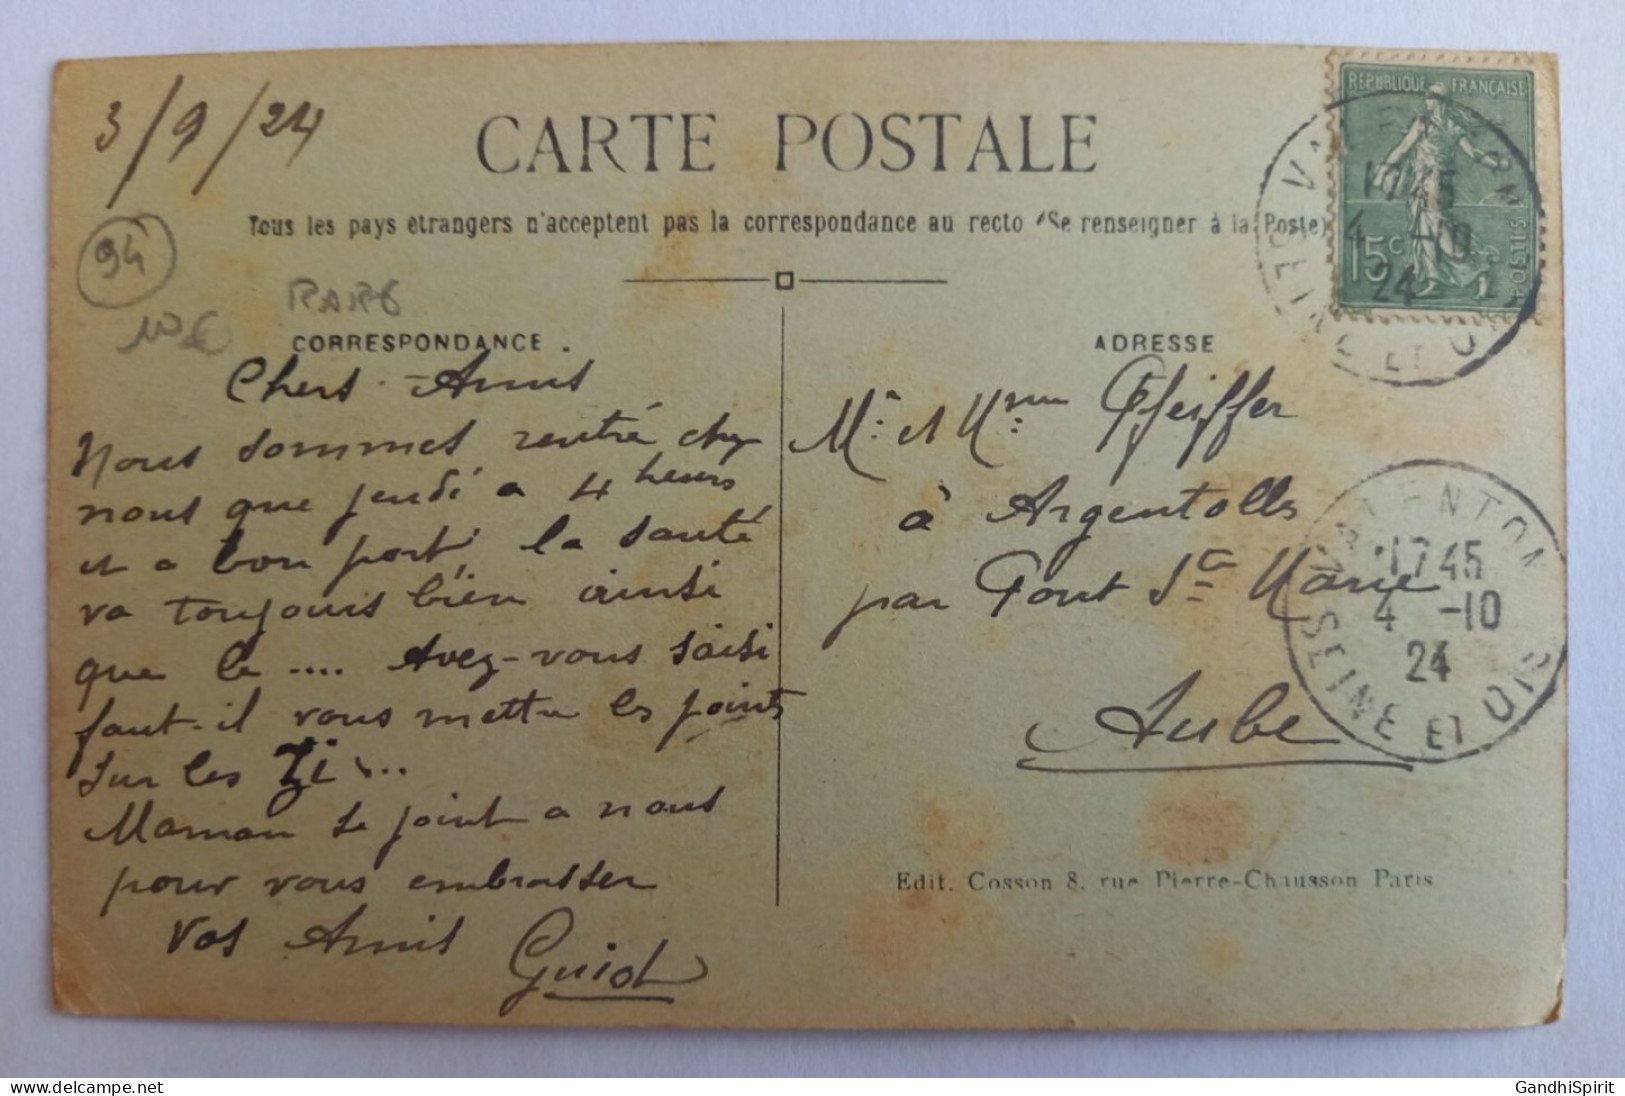 3/9/24
CARTE POSTALE
Tous les pays étrangers n'acceptent pas la correspondance au recto (Se renseigner à la Poste
RÉPUBLIQUE FRANÇAISE
15c
POSTES
VALENTON
17 45
4 -10
24
SEINE ET OISE
94
RARE
10€
CORRESPONDANCE.
Chers Amis
Nous sommes rentré chez
nous que jeudi a 4 heures
et a bon port, la santé
va toujours bien ainsi
que le .... Avez-vous saisi
faut-il vous mettre les points
sur les Zi ....
Maman se joint a nous
pour vous embrasser
Vos Amis
Guiot
ADRESSE
Mr et Mme Pfeiffer
à Argentolles
par Pont Ste Marie
Aube
VALENTON
17 45
4 -10
24
SEINE ET OISE
Edit. Cosson 8, rue Pierre-Chausson Paris
delcampe.net
GandhiSpirit